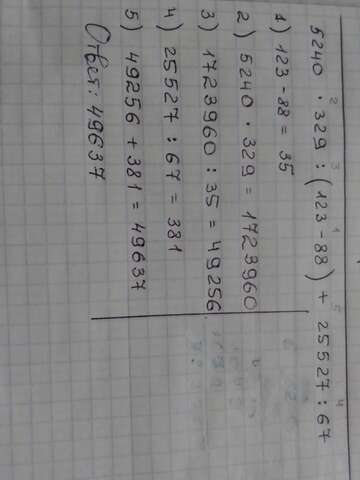 5240 · 329 : (123 - 88) + 25527 : 67
1) 123 - 88 = 35
2) 5240 · 329 = 1723960
3) 1723960 : 35 = 49256
4) 25527 : 67 = 381
5) 49256 + 381 = 49637
Ответ: 49637